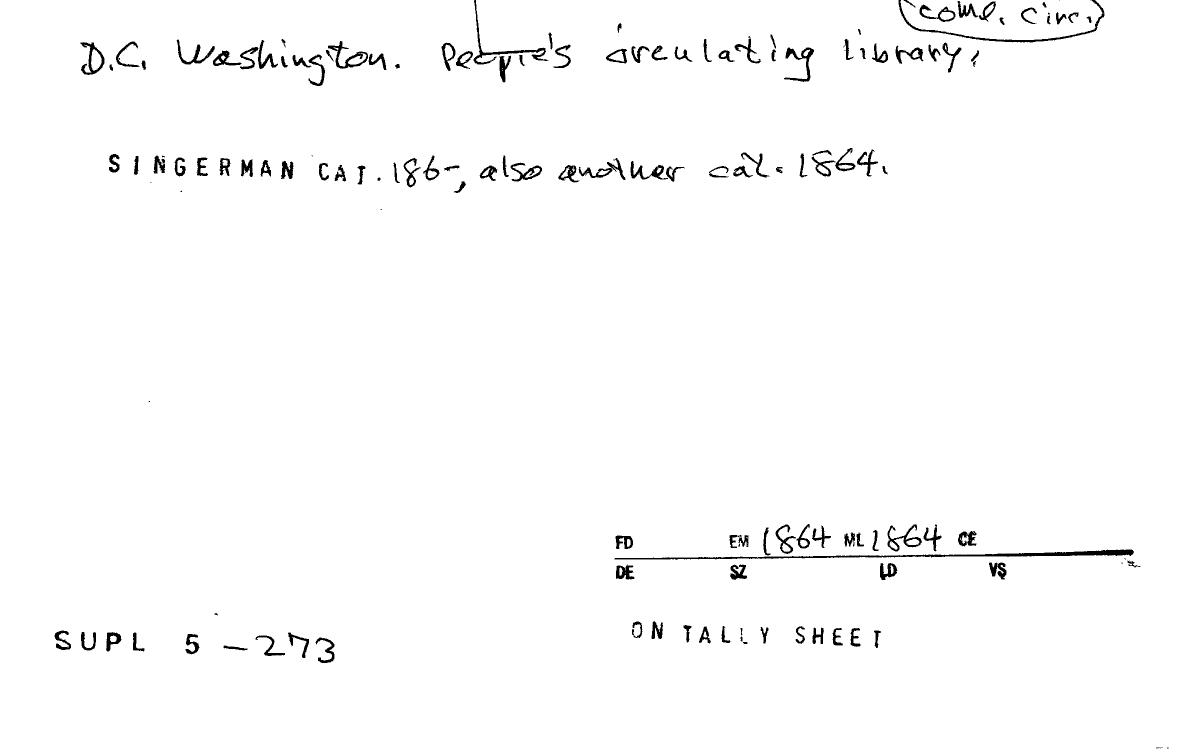 come. circ.
D.C. Washington. People's circulating library.
SINGERMAN CAT. 186-, also another cat. 1864.
FD EM 1864 ML 1864 CE
DE SZ LD VS
SUPL 5 - 273
ON TALLY SHEET